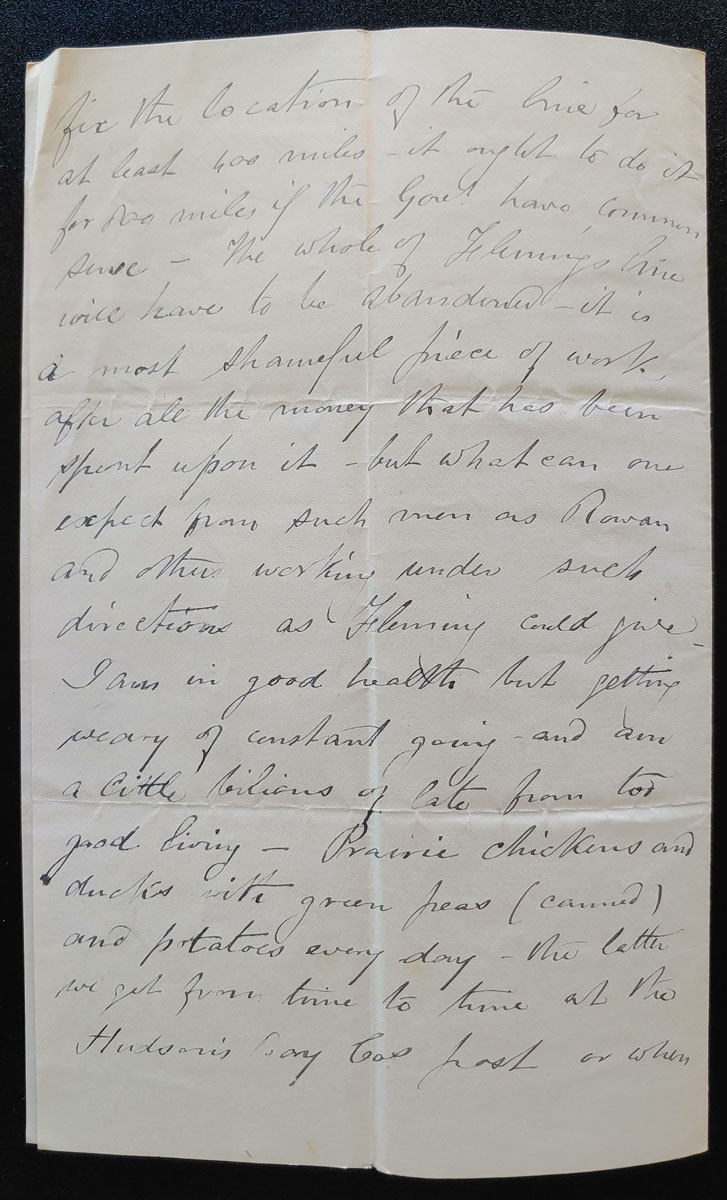 fix the location of the line for
at least 400 miles - it ought to do it
for 800 miles if the Govt have common
sense - The whole of Flemings line
will have to be abandoned - it is
a most shameful piece of work
after all the money that has been
spent upon it - but what can one
expect from such men as Rowan
and others working under such
directions as Fleming could give -
I am in good health but getting
weary of constant going - and am
a little bilious of late from too
good living - Prairie chickens and
ducks with green peas (canned)
and potatoes every day - the latter
we get from time to time at the
Hudson's bay Cos post or when